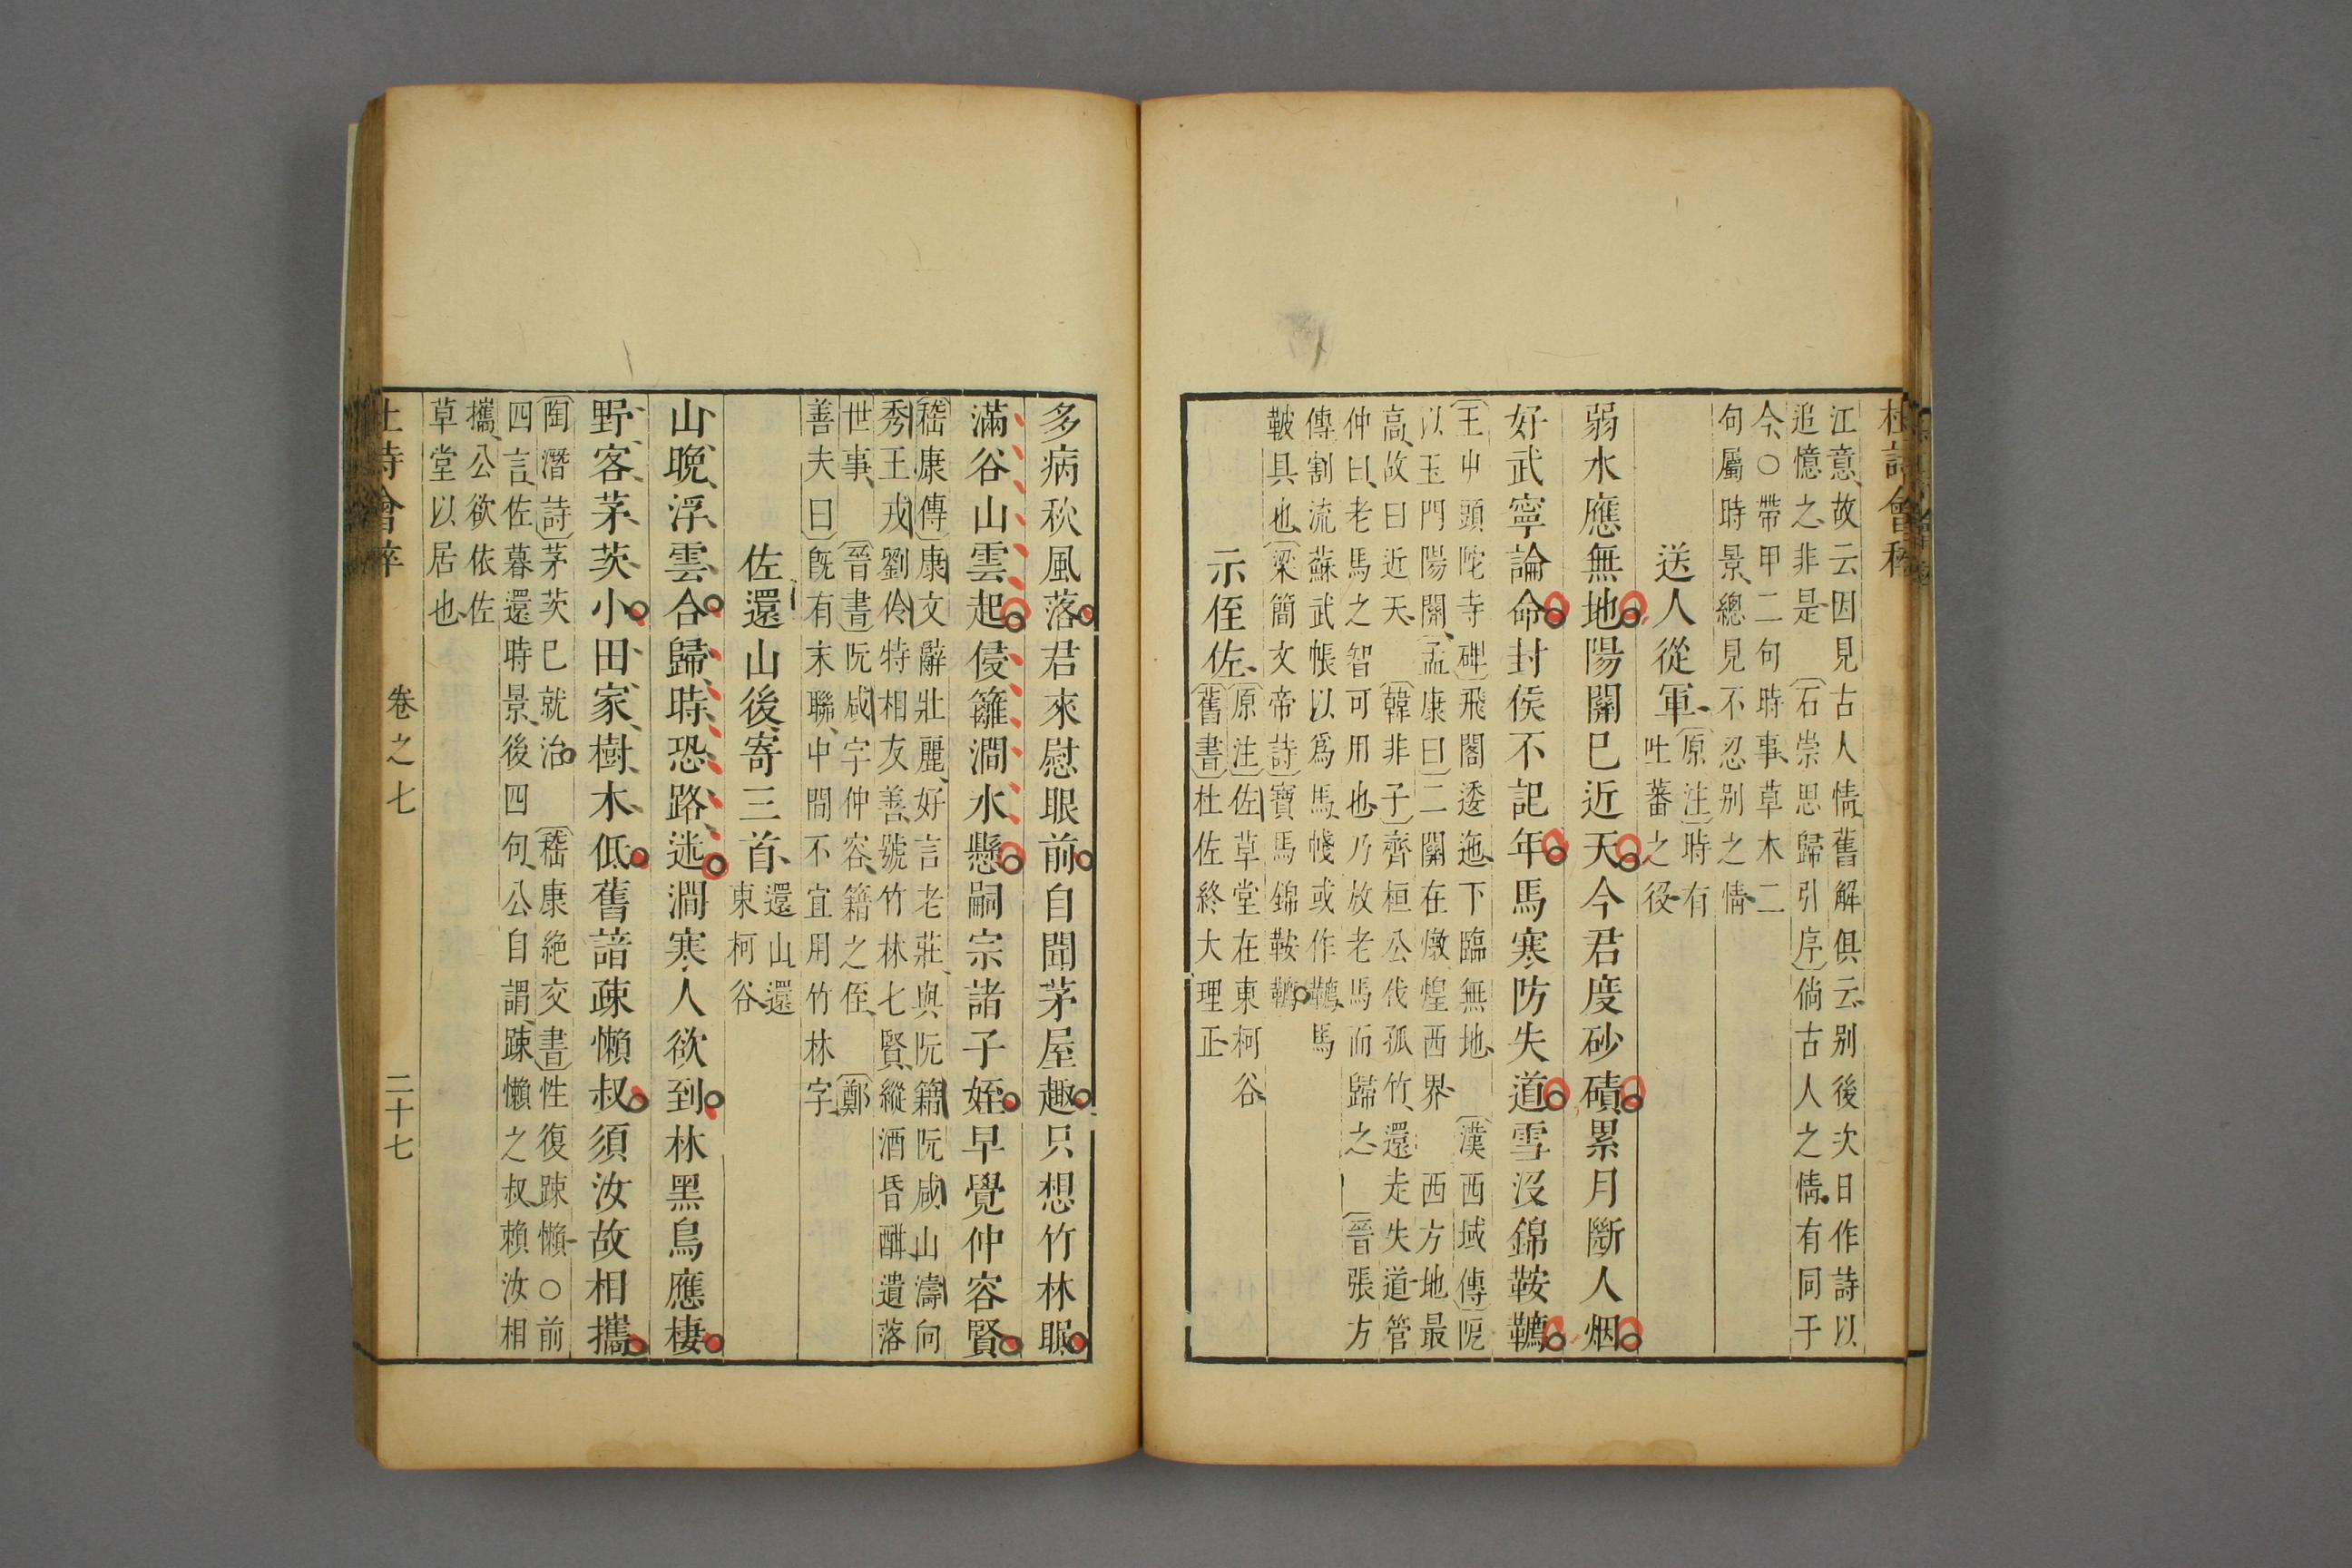 杜詩會稡
江意故云因見古人情舊解俱云别後次日作詩以
追憶之非是〔石崇思歸引序〕倘古人之情有同于
今○帶甲二句時事草木二
句屬時景總見不忍别之情
送人從軍〔原注〕時有
吐蕃之役
弱水應無地陽關已近天今君度砂磧累月斷人烟
好武寧論命封侯不記年馬寒防失道雪沒錦鞍韉
〔王屮頭陀寺碑〕飛閣逶迤下臨無地〔漢西域傳〕阨
以玉門陽關〔孟康曰〕二關在燉煌西界西方地最
高故曰近天〔韓非子〕齊桓公伐孤竹還走失道管
仲曰老馬之智可用也乃放老馬而歸之〔晉張方
傳〕割流蘇武帳以爲馬幭或作韉馬
鞁具也〔梁簡文帝詩〕寶馬錦鞍韉
示侄佐〔原注〕佐草堂在東柯谷
〔舊書〕杜佐終大理正
多病秋風落君來慰眼前自聞茅屋趣只想竹林眠
滿谷山雲起侵籬澗水懸嗣宗諸子姪早覺仲容賢
〔嵇康傳〕康文辭壯麗好言老莊與阮籍阮咸山濤向
秀王戎劉伶特相友善號竹林七賢縱酒昏酣遺落
世事〔晉書〕阮咸字仲容籍之侄〔鄭
善夫曰〕既有末聯中間不宜用竹林字
佐還山後寄三首還山還
東柯谷
山晚浮雲合歸時恐路迷澗寒人欲到林黑鳥應棲
野客茅茨小田家樹木低舊諳疎懶叔須汝故相攜
〔陶潛詩〕茅茨已就治〔嵇康絶交書〕性復踈懶○前
四言佐暮還時景後四句公自謂踈懶之叔賴汝相
攜公欲依佐
草堂以居也
杜詩會稡　卷之七　二十七